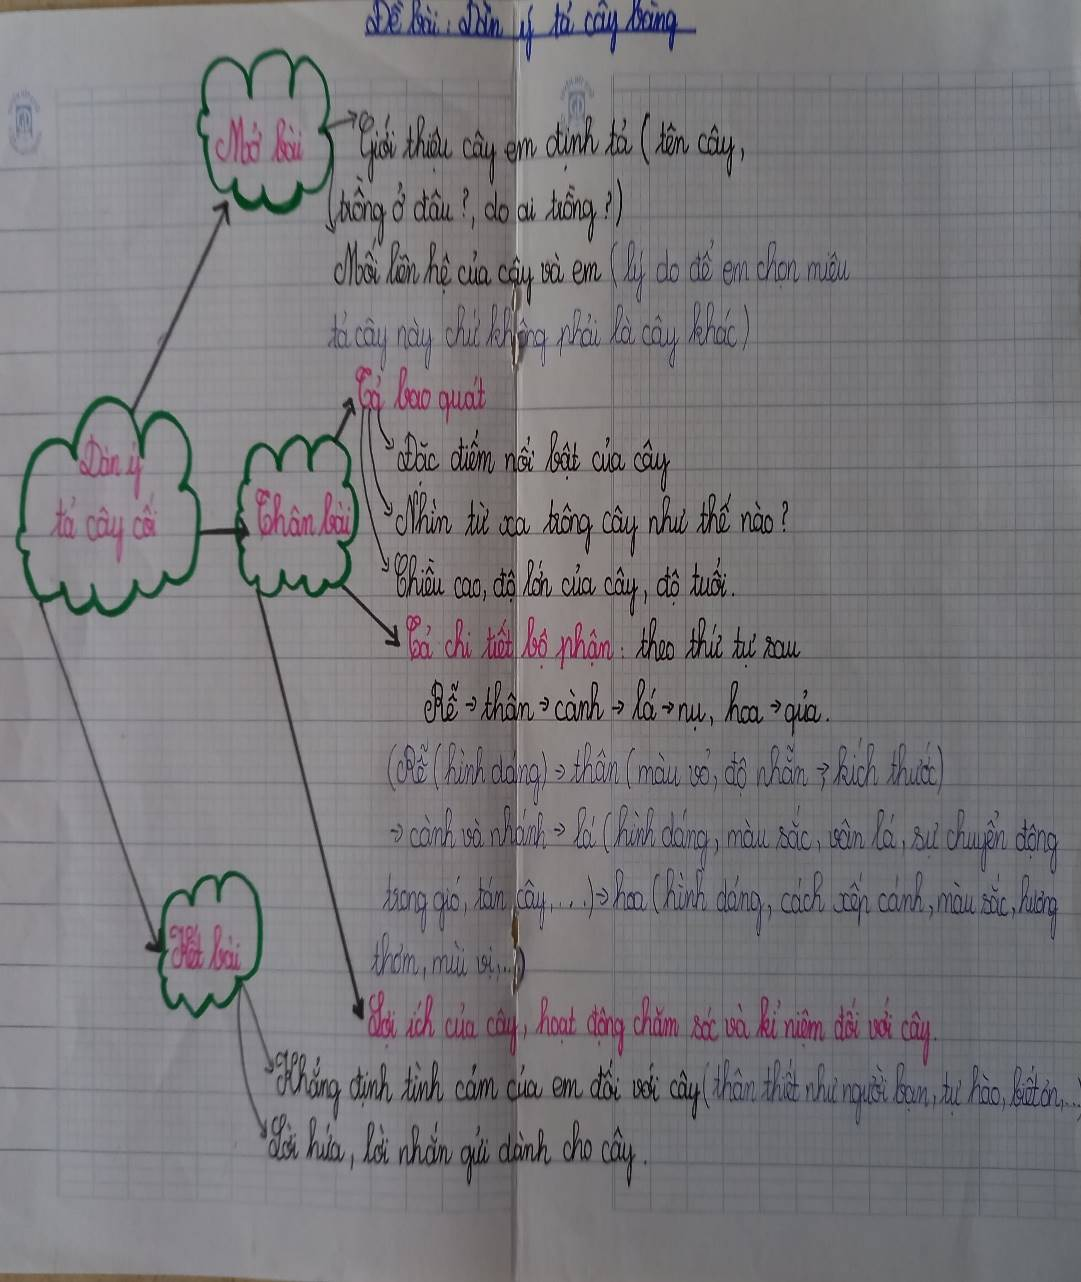 Đề bài: Dàn ý tả cây bàng
Mở bài
Giới thiệu cây em định tả (tên cây,
trồng ở đâu?, do ai trồng?)
Mối liên hệ của cây và em (lý do để em chọn miêu
tả cây này chứ không phải là cây khác)
Dàn ý
tả cây cối
Thân bài
Tả bao quát
Đặc điểm nổi bật của cây
Nhìn từ xa trông cây như thế nào?
Chiều cao, độ lớn của cây, độ tuổi.
Tả chi tiết bộ phận: theo thứ tự sau
Rễ → thân → cành → lá → nụ, hoa → qủa.
(Rễ (hình dáng) → thân (màu vỏ, độ nhẵn, kích thước)
→ cành và nhánh → lá (hình dáng, màu sắc, gân lá, sự chuyển động
trong gió, tán cây, ...) → hoa (hình dáng, cách xếp cánh, màu sắc, hương
thơm, mùi vị,...)
Kết bài
Lợi ích của cây, hoạt động chăm sóc và kỉ niệm đối với cây.
Khẳng định tình cảm của em đối với cây (thân thiết như người bạn, tự hào, biết ơn,...)
Lời hứa, lời nhắn gửi dành cho cây.